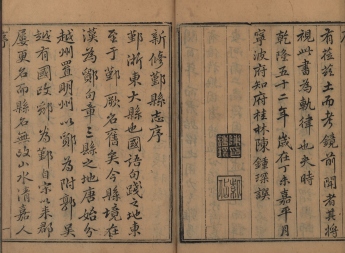 有莅茲土而考鏡前聞者其將
視此書為軌律也夫時
乾隆五十二年歲在丁未嘉平月
寧波府知府桂林陳鍾琛譔
新修鄞縣志序
鄞浙東大縣也國語句踐之地東
至于鄞厥名舊矣今縣境在
漢為鄮句章三縣之地唐始分
越州置明州以鄮為附郭吳
越有國改鄮為鄞自宋以來郡
屢更名而縣名無改山水清嘉人
序